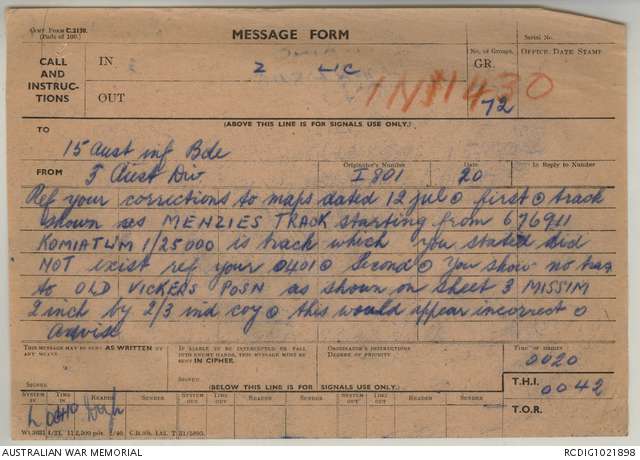 ARMY FORM C.2130.
(Pads of 100.)
MESSAGE FORM
Serial No.
CALL
AND
INSTRUC-
TIONS
IN
2
LIC
No. of Groups.
GR.
72
OFFICE DATE STAMP
OUT
IN 11430
(ABOVE THIS LINE IS FOR SIGNALS USE ONLY.)
TO
15 Aust inf Bde
FROM
5 Aust Div
Originator's Number
I 801
Date
20
In Reply to Number
Ref your corrections to maps dated 12 jul @ first @ track
shown as MENZIES TRACK starting from 676911
KOMIATUM 1/25000 is track which you stated did
NOT exist ref your 0401 @ Second @ You show no
to OLD VICKERS POSN as shown on sheet 3 MISSIM
2 inch by 2/3 ind coy @ this would appear incorrect @
Advise
THIS MESSAGE MAY BE SENT AS WRITTEN BY
ANY MEANS.
SIGNED
IF LIABLE TO BE INTERCEPTED OR FALL
INTO ENEMY HANDS, THIS MESSAGE MUST BE
SENT IN CIPHER.
SIGNED
ORIGINATOR'S INSTRUCTIONS
DEGREE OF PRIORITY.
TIME OF ORIGIN
0020
(BELOW THIS LINE IS FOR SIGNALS USE ONLY.)
T.H.I.
0042
SYSTEM IN
TIME IN
READER
SENDER
SYSTEM OUT
TIME OUT
READER
SENDER
SYSTEM OUT
TIME OUT
READER
SENDER
T.O.R.
AUSTRALIAN WAR MEMORIAL
RCDIG1021898